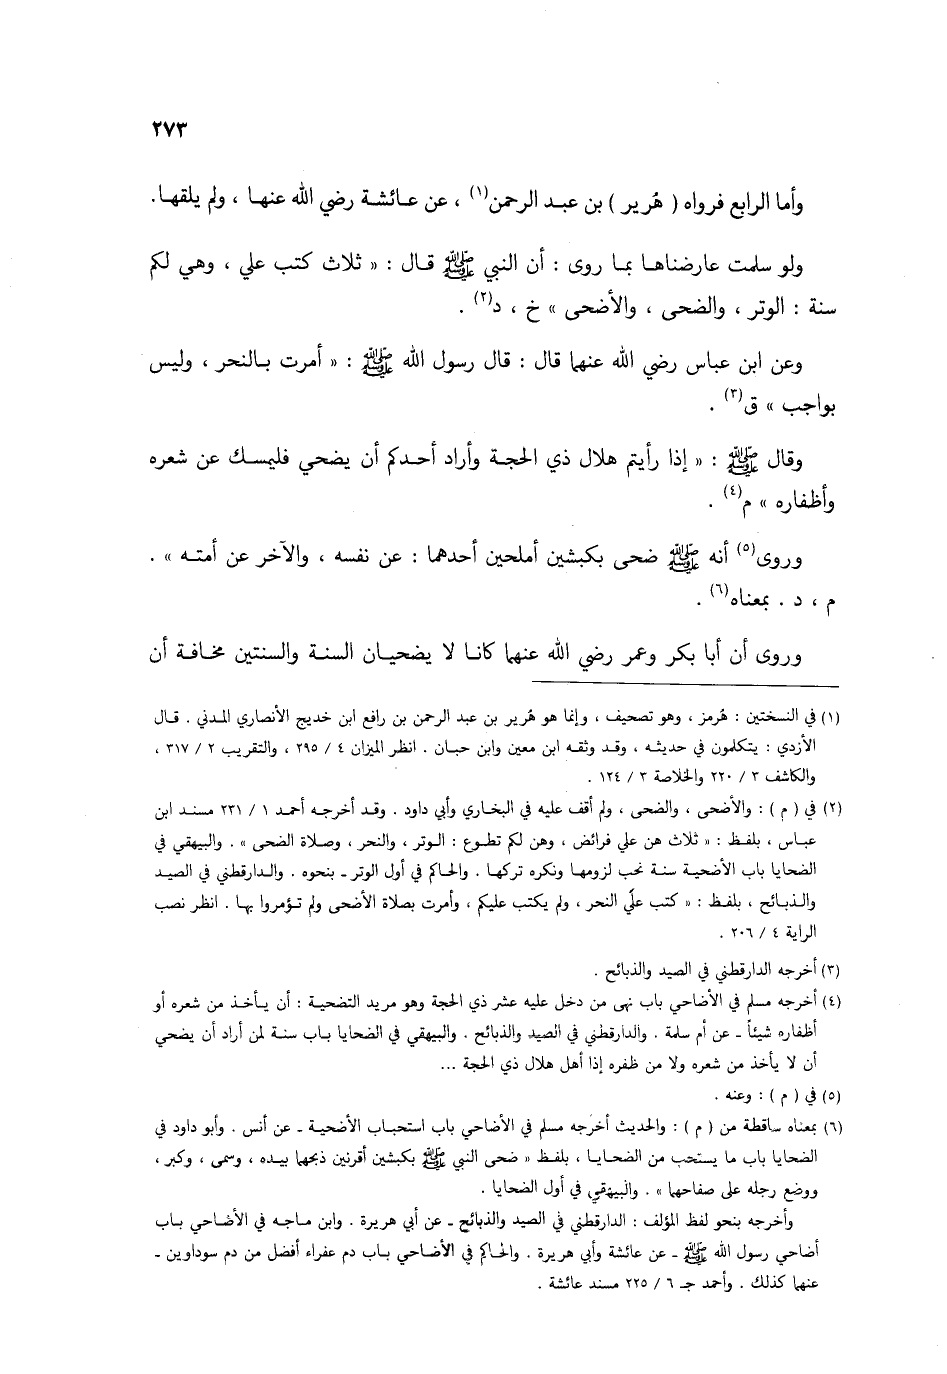 ٢٧٣
وأما الرابع فرواه ( هُرير ) بن عبد الرحمن(١) ، عن عائشة رضي الله عنها ، ولم يلقها.
ولو سلمت عارضناها بما روى : أن النبي ﷺ قال : « ثلاث كتب علي ، وهي لكم
سنة : الوتر ، والضحى ، والأضحى » خ ، د(٢) .
وعن ابن عباس رضي الله عنهما قال : قال رسول الله ﷺ : « أمرت بالنحر ، وليس
بواجب » ق(٣) .
وقال ﷺ : « إذا رأيتم هلال ذي الحجة وأراد أحدكم أن يضحي فليمسك عن شعره
وأظفاره » م(٤) .
وروى(٥) أنه ﷺ ضحى بكبشين أملحين أحدهما : عن نفسه ، والآخر عن أمته » .
م ، د . بمعناه(٦) .
وروى أن أبا بكر وعمر رضي الله عنهما كانا لا يضحيان السنة والسنتين مخافة أن
(١) في النسختين : هُرمز ، وهو تصحيف ، وإنما هو هُرير بن عبد الرحمن بن رافع ابن خديج الأنصاري المدني . قال
الأزدي : يتكلمون في حديثه ، وقد وثقه ابن معين وابن حبان . انظر الميزان ٤ / ٢٩٥ ، والتقريب ٢ / ٣١٧ ،
والكاشف ٣ / ٢٢٠ والخلاصة ٣ / ١٢٤ .
(٢) في ( م ) : والأضحى ، والضحى ، ولم أقف عليه في البخاري وأبي داود . وقد أخرجه أحمد ١ / ٢٣١ مسند ابن
عباس ، بلفظ : « ثلاث هن علي فرائض ، وهن لكم تطوع : الوتر ، والنحر ، وصلاة الضحى » . والبيهقي في
الضحايا باب الأضحية سنة نحب لزومها ونكره تركها . والحاكم في أول الوتر ـ بنحوه . والدارقطني في الصيد
والذبائح ، بلفظ : « كتب عليّ النحر ، ولم يكتب عليكم ، وأمرت بصلاة الأضحى ولم تؤمروا بها . انظر نصب
الراية ٤ / ٢٠٦ .
(٣) أخرجه الدارقطني في الصيد والذبائح .
(٤) أخرجه مسلم في الأضاحي باب نهى من دخل عليه عشر ذي الحجة وهو مريد التضحية : أن يأخذ من شعره أو
أظفاره شيئاً ـ عن أم سلمة . والدارقطني في الصيد والذبائح . والبيهقي في الضحايا باب سنة لمن أراد أن يضحي
أن لا يأخذ من شعره ولا من ظفره إذا أهل هلال ذي الحجة ...
(٥) في ( م ) : وعنه .
(٦) بمعناه ساقطة من ( م ) : والحديث أخرجه مسلم في الأضاحي باب استحباب الأضحية ـ عن أنس . وأبو داود في
الضحايا باب ما يستحب من الضحايا ، بلفظ « ضحى النبي ﷺ بكبشين أقرنين ذبحهما بيده ، وسمى ، وكبر ،
ووضع رجله على صفاحهما » . والبيهقي في أول الضحايا .
وأخرجه بنحو لفظ المؤلف : الدارقطني في الصيد والذبائح ـ عن أبي هريرة . وابن ماجه في الأضاحي باب
أضاحي رسول الله ﷺ ـ عن عائشة وأبي هريرة . والحاكم في الأضاحي باب دم عفراء أفضل من دم سوداوين ـ
عنهما كذلك . وأحمد جـ ٦ / ٢٢٥ مسند عائشة .